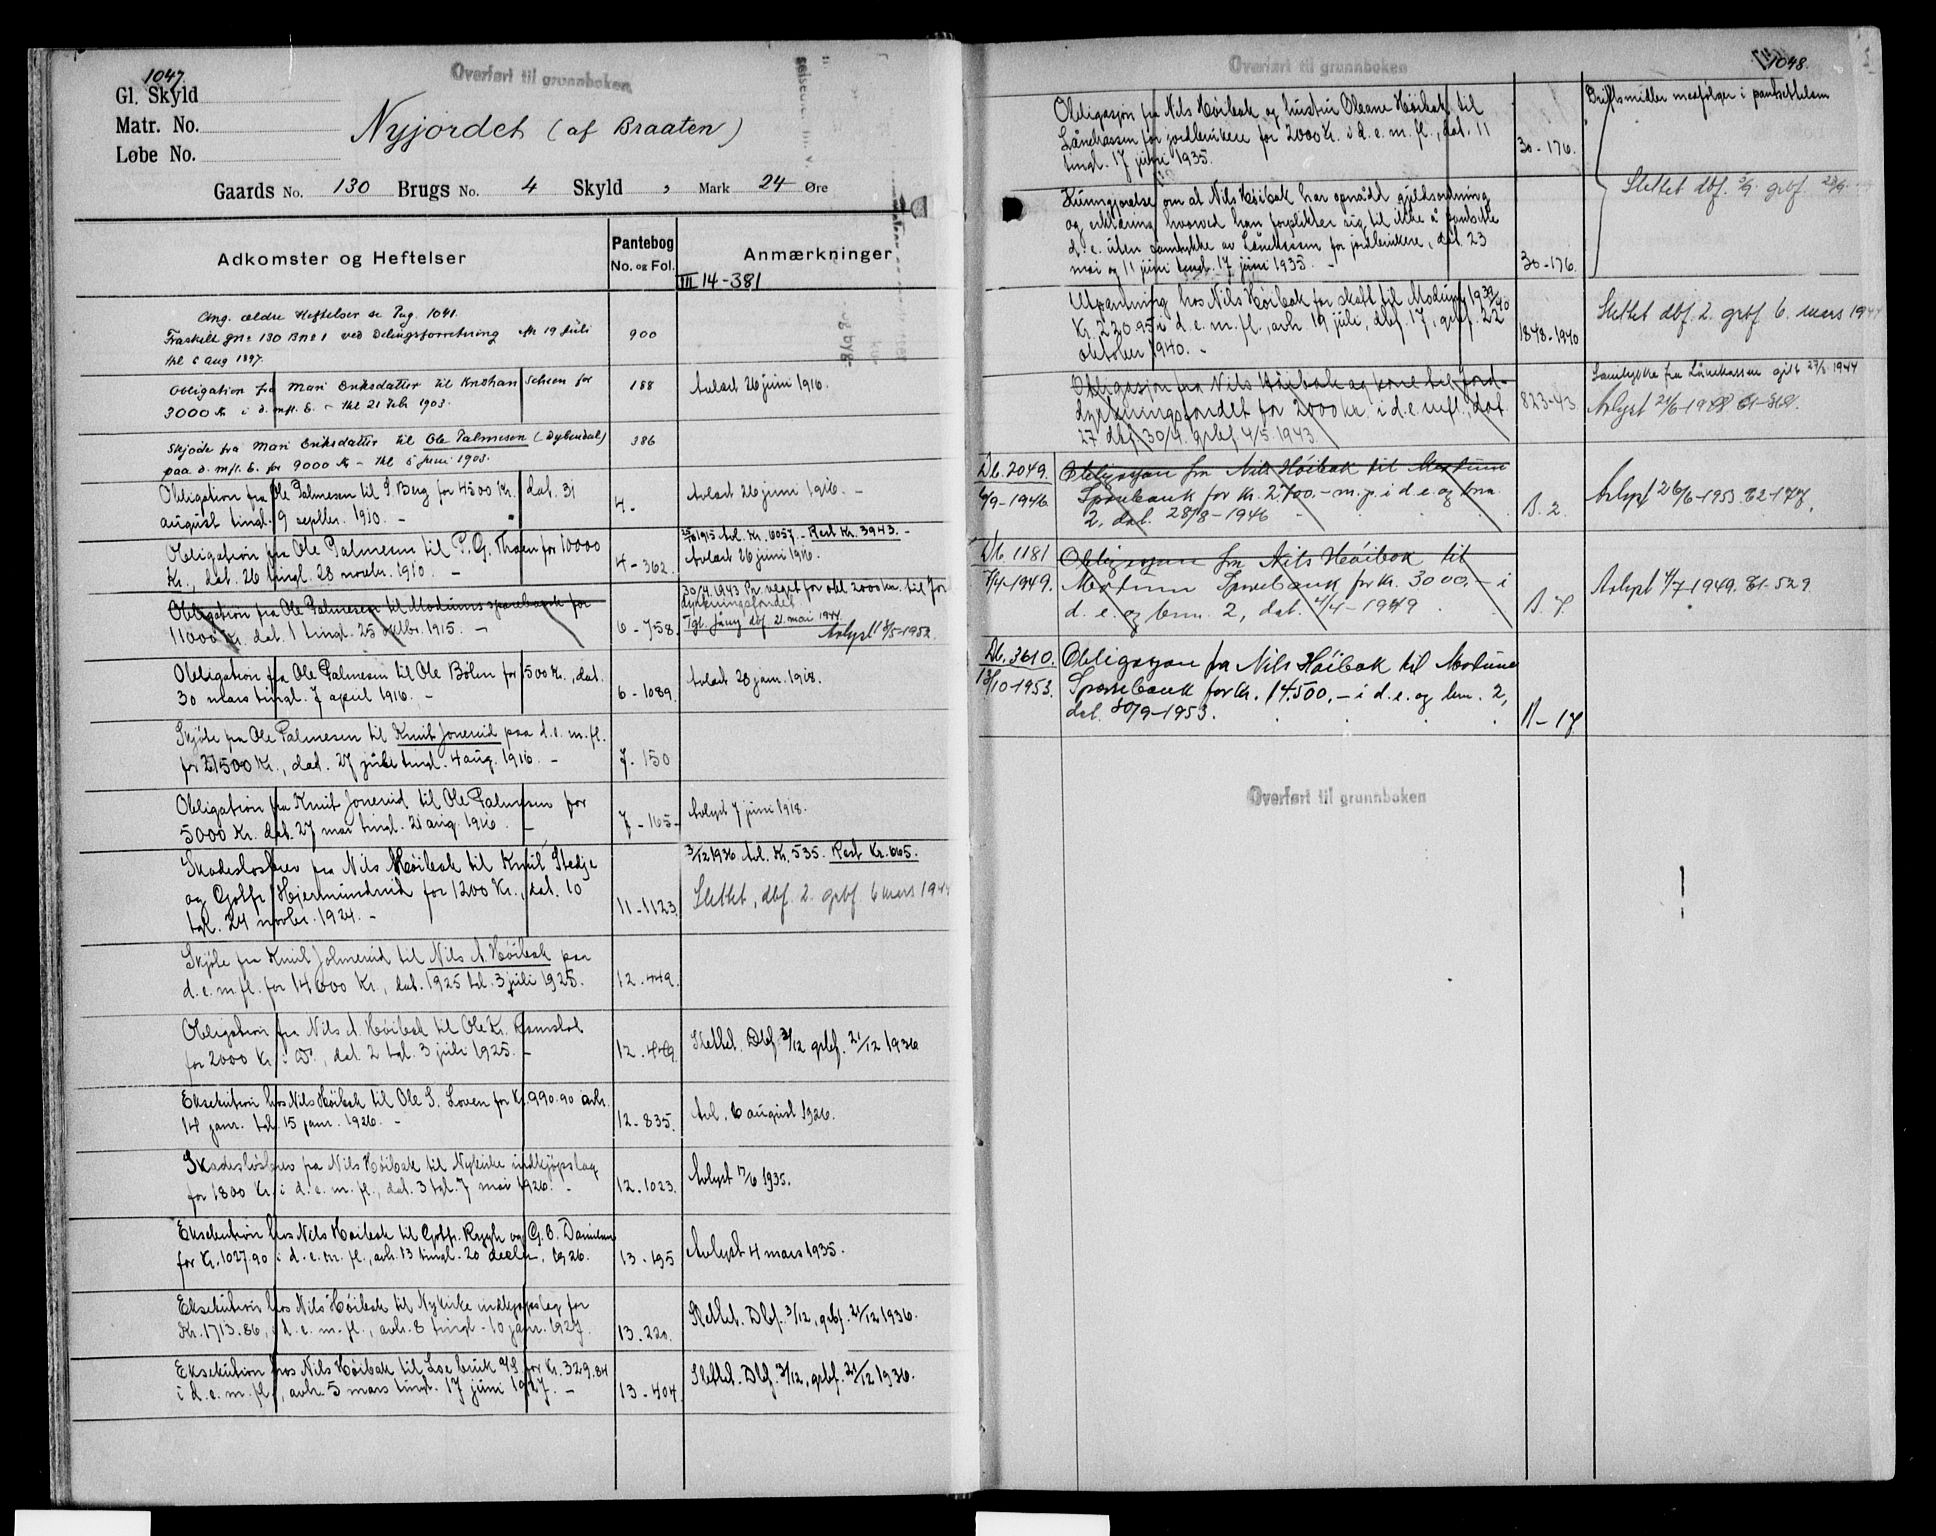 1047.
Overført til grunnboken
Gl. Skyld
Matr. No.
Løbe No.
Nyjordet (af Braaten)
Gaards No. 130 Brugs No. 4 Skyld , Mark 24 Øre
Adkomster og Heftelser
Pantebog
No. og Fol.
Anmærkninger
III 14-381
Ang. ældre Heftelser se Pag. 1041.
Fraskilt Gno 130 Bno 1 ved Delingsforretning 19 Juli
thl 6 Aug 1897.
900
Obligation fra Mari Eriksdatter til Johan for
3000 Kr i d. mfl. E. - thl 21 Febr 1903.
188
Avlæst 26 juni 1916.
Skjøde fra Mari Eriksdatter til Ole Palmesen (Dybendal)
paa d. mfl. E. for 9000 Kr - thl 5 Juni 1903.
386
Obligation fra Ole Palmesen til S. Berg for 4500 Kr. dat. 31
august tingl. 9 septbr. 1910. -
4 -
Avlæst 26 juni 1916. -
Obligation fra Ole Palmesen til P. G. Thoen for 10000
Kr., dat. 26 tingl. 28 novbr. 1910. -
4 - 362.
1915 Avl. Kr. 6057. - Rest Kr. 3943. -
Avlæst 26 juni 1916.
Obligation fra Ole Palmesen til Modums sparebank for
11000 Kr. dat. 1 tingl. 25 oktbr. 1915. -
6 - 758.
30/4 1943 Pr. veget for obl 2000 kr. til jord
dyrkningsfondet
Tgl. dbf 21. mai 1944.
Avlyst /5-1952.
Obligation fra Ole Palmesen til Ole Bølen for 1500 Kr., dat.
30 mars tingl. 7 april 1916. -
6 - 1089.
Avlæst 28 jan. 1918.
Skjøte fra Ole Palmesen til Knut Jonerud paa d. e. m. fl.
for 21500 Kr., dat. 27 juli tingl. 4 aug. 1916. -
7 - 150
Obligation fra Knut Jonerud til Ole Palmesen for
5000 Kr. dat. 27 mai tingl. 21 aug. 1916. -
7 - 165 -
Avlyst 7 juni 1918.
Skadesløsbrev fra Nils Høibak til Knut Stedje
og Gotfr. Hjermundrud for 1200 Kr., dat. 10
tgl. 24 novbr. 1924. -
11 - 1123.
3/12 1936 Avl. Kr. 535. Rest Kr. 665.
Slettet, dbf. 2. grbf. 6 mars 1944
Skjøte fra Knut Jolmerud til Nils A. Høibak paa
d. e. m. fl. for 14000 Kr., dat. 1925 tgl. 3 juli 1925.
12 - 449.
Obligation fra Nils A. Høibak til Ole Kr. Ramstol
for 2000 Kr. i Do., dat. 2 tgl. 3 juli 1925. -
12 - 449.
Slettet. Dbf. 3/12 grbf. 21/12 1936
Eksekution hos Nils Høibak til Ole S. Loven for Kr. 990.90 avh.
14 janr. tgl. 15 janr. 1926. -
12 - 835.
Avl. 6 august 1926.
Skadesløsbrev fra Nils Høibak til Nykirke indkjøpslag
for 1800 Kr. i d. e. m. fl., dat. 3 tgl. 7 mai 1926. -
12 - 1023.
Avlyst 17/6 1935.
Eksekution hos Nils Høibak til Gotfr. Rygh og G. E. Danielsen
for Kr. 1027.90 i d. e. m. fl., avh. 13 tingl. 20 decbr. 1926.
13 - 195
Avlyst 4 mars 1935.
Eksekution hos Nils Høibak til Nykirke indkjøpslag for
Kr. 1713.86, i d. e. m. fl., avh. 8 tingl. 10 janr. 1927.
13 - 220.
Slettet. Dbf. 3/12, grbf. 21/12 1936.
Eksekution hos Nils Høibak til Loe bruk A/S for Kr. 329.84
i d. e. m. fl., avh. 5 mars tingl. 17 juni 1927. -
13 - 404
Slettet. Dbf. 3/12, grbf. 21/12 1936.
Overført til grunnboken
1048.
Obligasjon fra Nils Høibak og hustru Oleane Høibak til
Lånekassen for jordbrukere for 2000 Kr. i d. e. m. fl., dat. 11
tingl. 17 juni 1935.
30 - 176.
Driftsmidler medfølger i pantsettelsen
Kunngjørelse om at Nils Høibak har opnådd gjeldsordning
og erklæring hvorved han forplikter sig til ikke å pantsette
d. e. uten samtykke av Lånekassen for jordbrukere, dat. 23
mai og 11 juni tingl. 17 juni 1935. -
30 - 176.
Slettet dbf. 2/9. grbf. 23/9.
Utpantning hos Nils Høibak for skatt til Modum 1939/40
Kr. 230.95 i d. e. m. fl., avh. 19 juli, dbf. 17, grbf. 22
oktober 1940. -
1848 - 1940
Slettet dbf. 2. grbf. 6. mars 1944
Obligasjon fra Nils Høibak og kone til Jord-
dyrkningsfondet for 2000 kr. i d. e. mfl., dat.
27 dbf. 30/4. grbf 4/5. 1943.
823 - 43.
Samtykke fra Lånekassen gitt 1944
Avlyst 21/6-1948
Db. 2049.
6/9-1946.
Obligasjon fra Nils Høibak til Modum
Sparebank for kr. 2700,- m. p. i d. e. og bnr.
2, dat. 28/8-1946
B. 2.
Avlyst 26/6-1953. 82-177.
Db. 1181
7/4-1949.
Obligasjon fra Nils Høibak til
Modum Sparebank for kr. 3000,- i
d. e. og bnr. 2, dat. 4/4-1949
B. 7
Avlyst 4/7-1949. 81-529
Db. 3610.
13/10-1953.
Obligasjon fra Nils Høibak til Modum
Sparebank for kr. 14.500,- i d. e. og bnr. 2,
dat. 30/9-1953.
B - 17
Overført til grunnboken